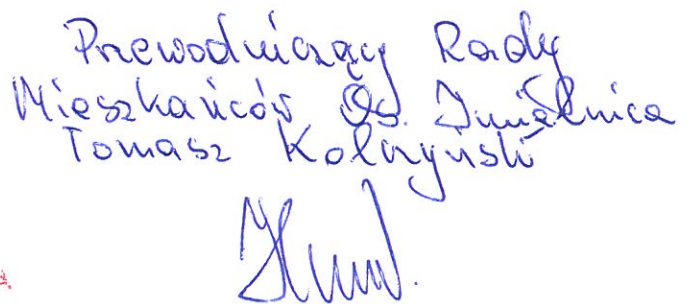 Przewodniczący Rady
Mieszkańców Os. Imielnica
Tomasz Kolczyński